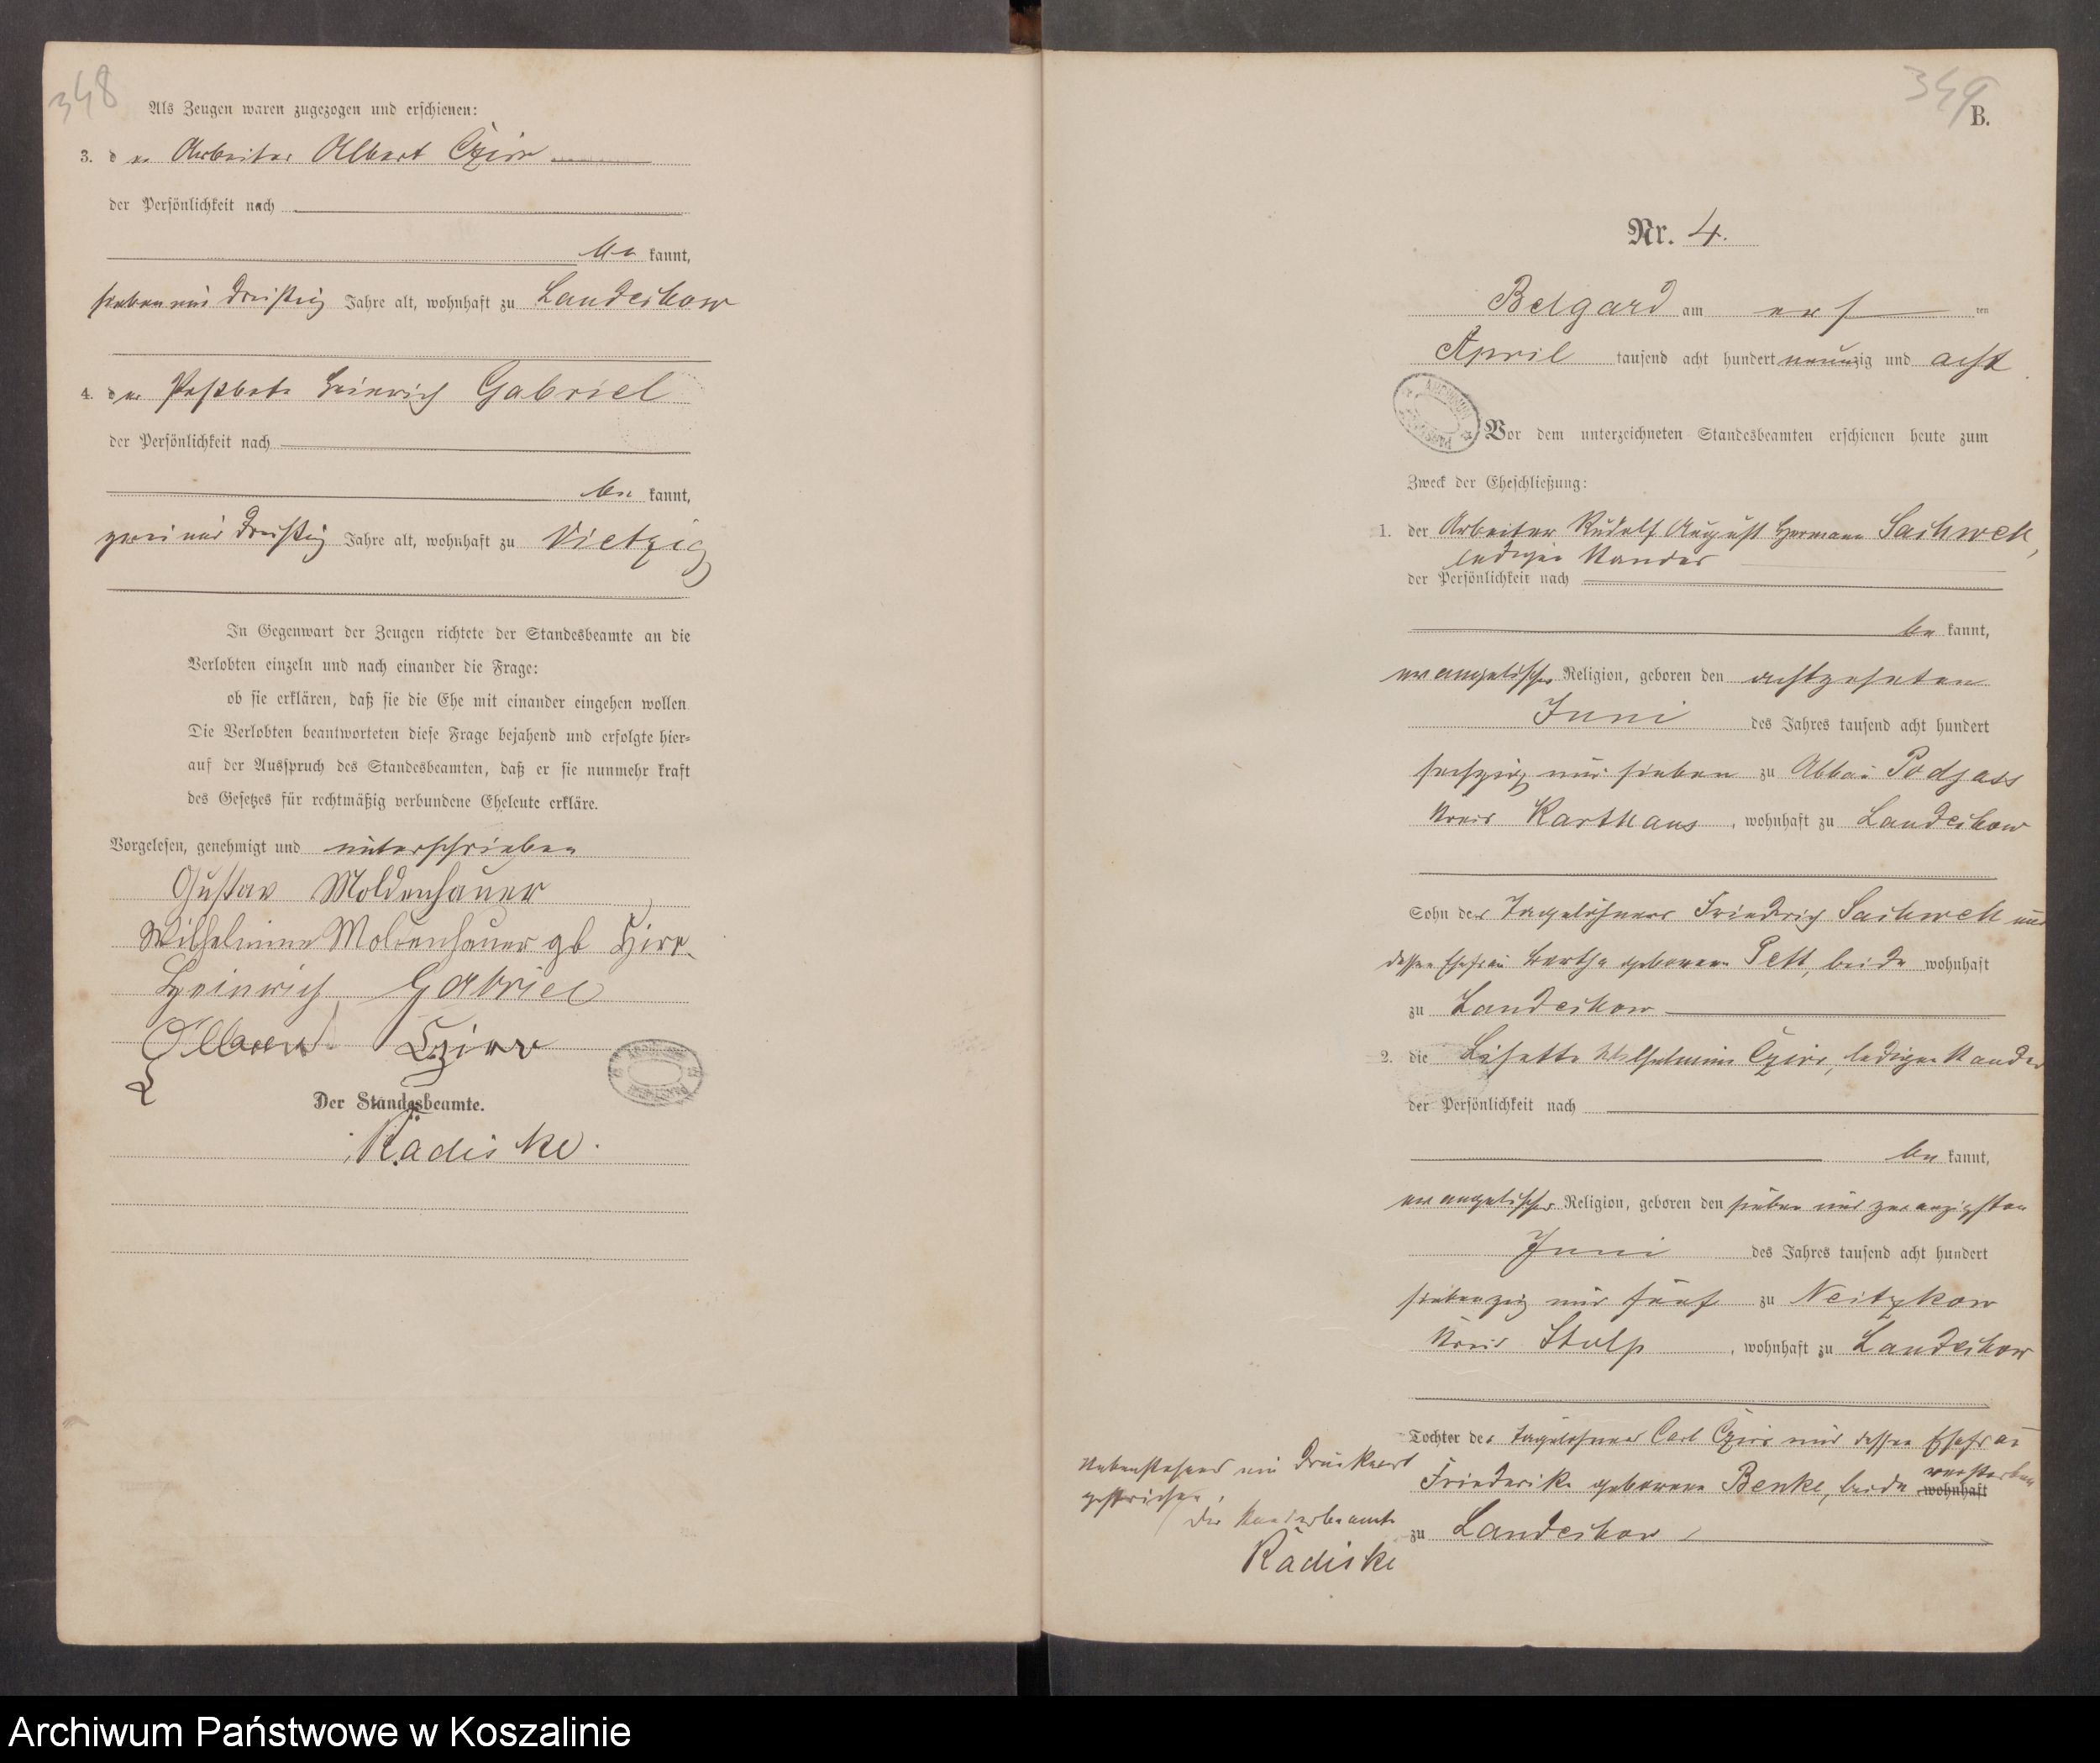 348
Als Zeugen waren zugezogen und erschienen:
3. der Arbeiter Albert Czirr
der Persönlichkeit nach
be kannt,
sieben und dreißig Jahre alt, wohnhaft zu Landechow
4. der Postbote Heinrich Gabriel
der Persönlichkeit nach
be kannt,
zwei und dreißig Jahre alt, wohnhaft zu Vietzig
In Gegenwart der Zeugen richtete der Standesbeamte an die
Verlobten einzeln und nach einander die Frage:
ob sie erklären, daß sie die Ehe mit einander eingehen wollen.
Die Verlobten beantworteten diese Frage bejahend und erfolgte hier-
auf der Ausspruch des Standesbeamten, daß er sie nunmehr kraft
des Gesetzes für rechtmäßig verbundene Eheleute erkläre.
Vorgelesen, genehmigt und unterschrieben
Gustav Moldenhauer
Wilhelmine Moldenhauer gb Czirr
Heinrich Gabriel
Albert Czirr
Der Standesbeamte.
Radiske.
349
B.
Nr. 4.
Belgard am ten
April tausend acht hundert neunzig und acht
Vor dem unterzeichneten Standesbeamten erschienen heute zum
Zweck der Eheschließung:
1. der Arbeiter Rudolf August Hermann Sachweh,
ledigen Standes
der Persönlichkeit nach
be kannt,
evangelischer Religion, geboren den achtzehnten
Juni des Jahres tausend acht hundert
sechzig und sieben zu Abbau Podjass
Kreis Karthaus, wohnhaft zu Landechow
Sohn des Tagelöhners Friedrich Sachweh und
dessen Ehefrau Bertha geborenen Pett, beide wohnhaft
zu Landechow
2. die Lisette Wilhelmine Czirr, ledigen Standes
der Persönlichkeit nach
be kannt,
evangelischer Religion, geboren den sieben und zwanzigsten
Juni des Jahres tausend acht hundert
siebenzig und fünf zu Neitzkow
Kreis Stolp, wohnhaft zu Landechow
Tochter des Tagelöhners Carl Czirr und dessen Ehefrau
Friederike geborenen Benke, beide verstorben wohnhaft
zu Landechow
Nebenstehend ein Druckwort
gestrichen.
Der Standesbeamte
Radiske
Archiwum Państwowe w Koszalinie